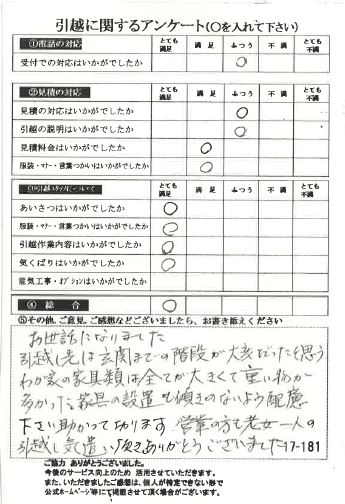 引越に関するアンケート(○を入れて下さい)
①電話の対応 とても満足 満足 ふつう 不満 とても不満
受付での対応はいかがでしたか ○
②見積の対応 とても満足 満足 ふつう 不満 とても不満
見積の対応はいかがでしたか ○
引越の説明はいかがでしたか ○
見積料金はいかがでしたか ○
服装・マナー・言葉つかいはいかがでしたか ○
③引越スタッフについて とても満足 満足 ふつう 不満 とても不満
あいさつはいかがでしたか ○
服装・マナー・言葉つかいはいかがでしたか ○
引越作業内容はいかがでしたか ○
気くばりはいかがでしたか ○
電気工事・オプションはいかがでしたか
④ 総 合 ○
⑤その他、ご意見、ご感想などございましたら、お書き添えください
お世話になりました
引越し先は玄関までの階段が大変だったと思う
わが家の家具類は全てが大きくて重い物が
多かった 家具の設置も傾きのないよう配慮
下さい助かって居ります 営業の方も老女一人の
引越し気遣い頂きありがとうございました 17-181
ご協力 ありがとうございました。
今後のサービス向上のため 活用させていただきます。
また、いただきましたご感想は、個人が特定できない形で
公式ホームページ等にて掲載させて頂く場合がございます。